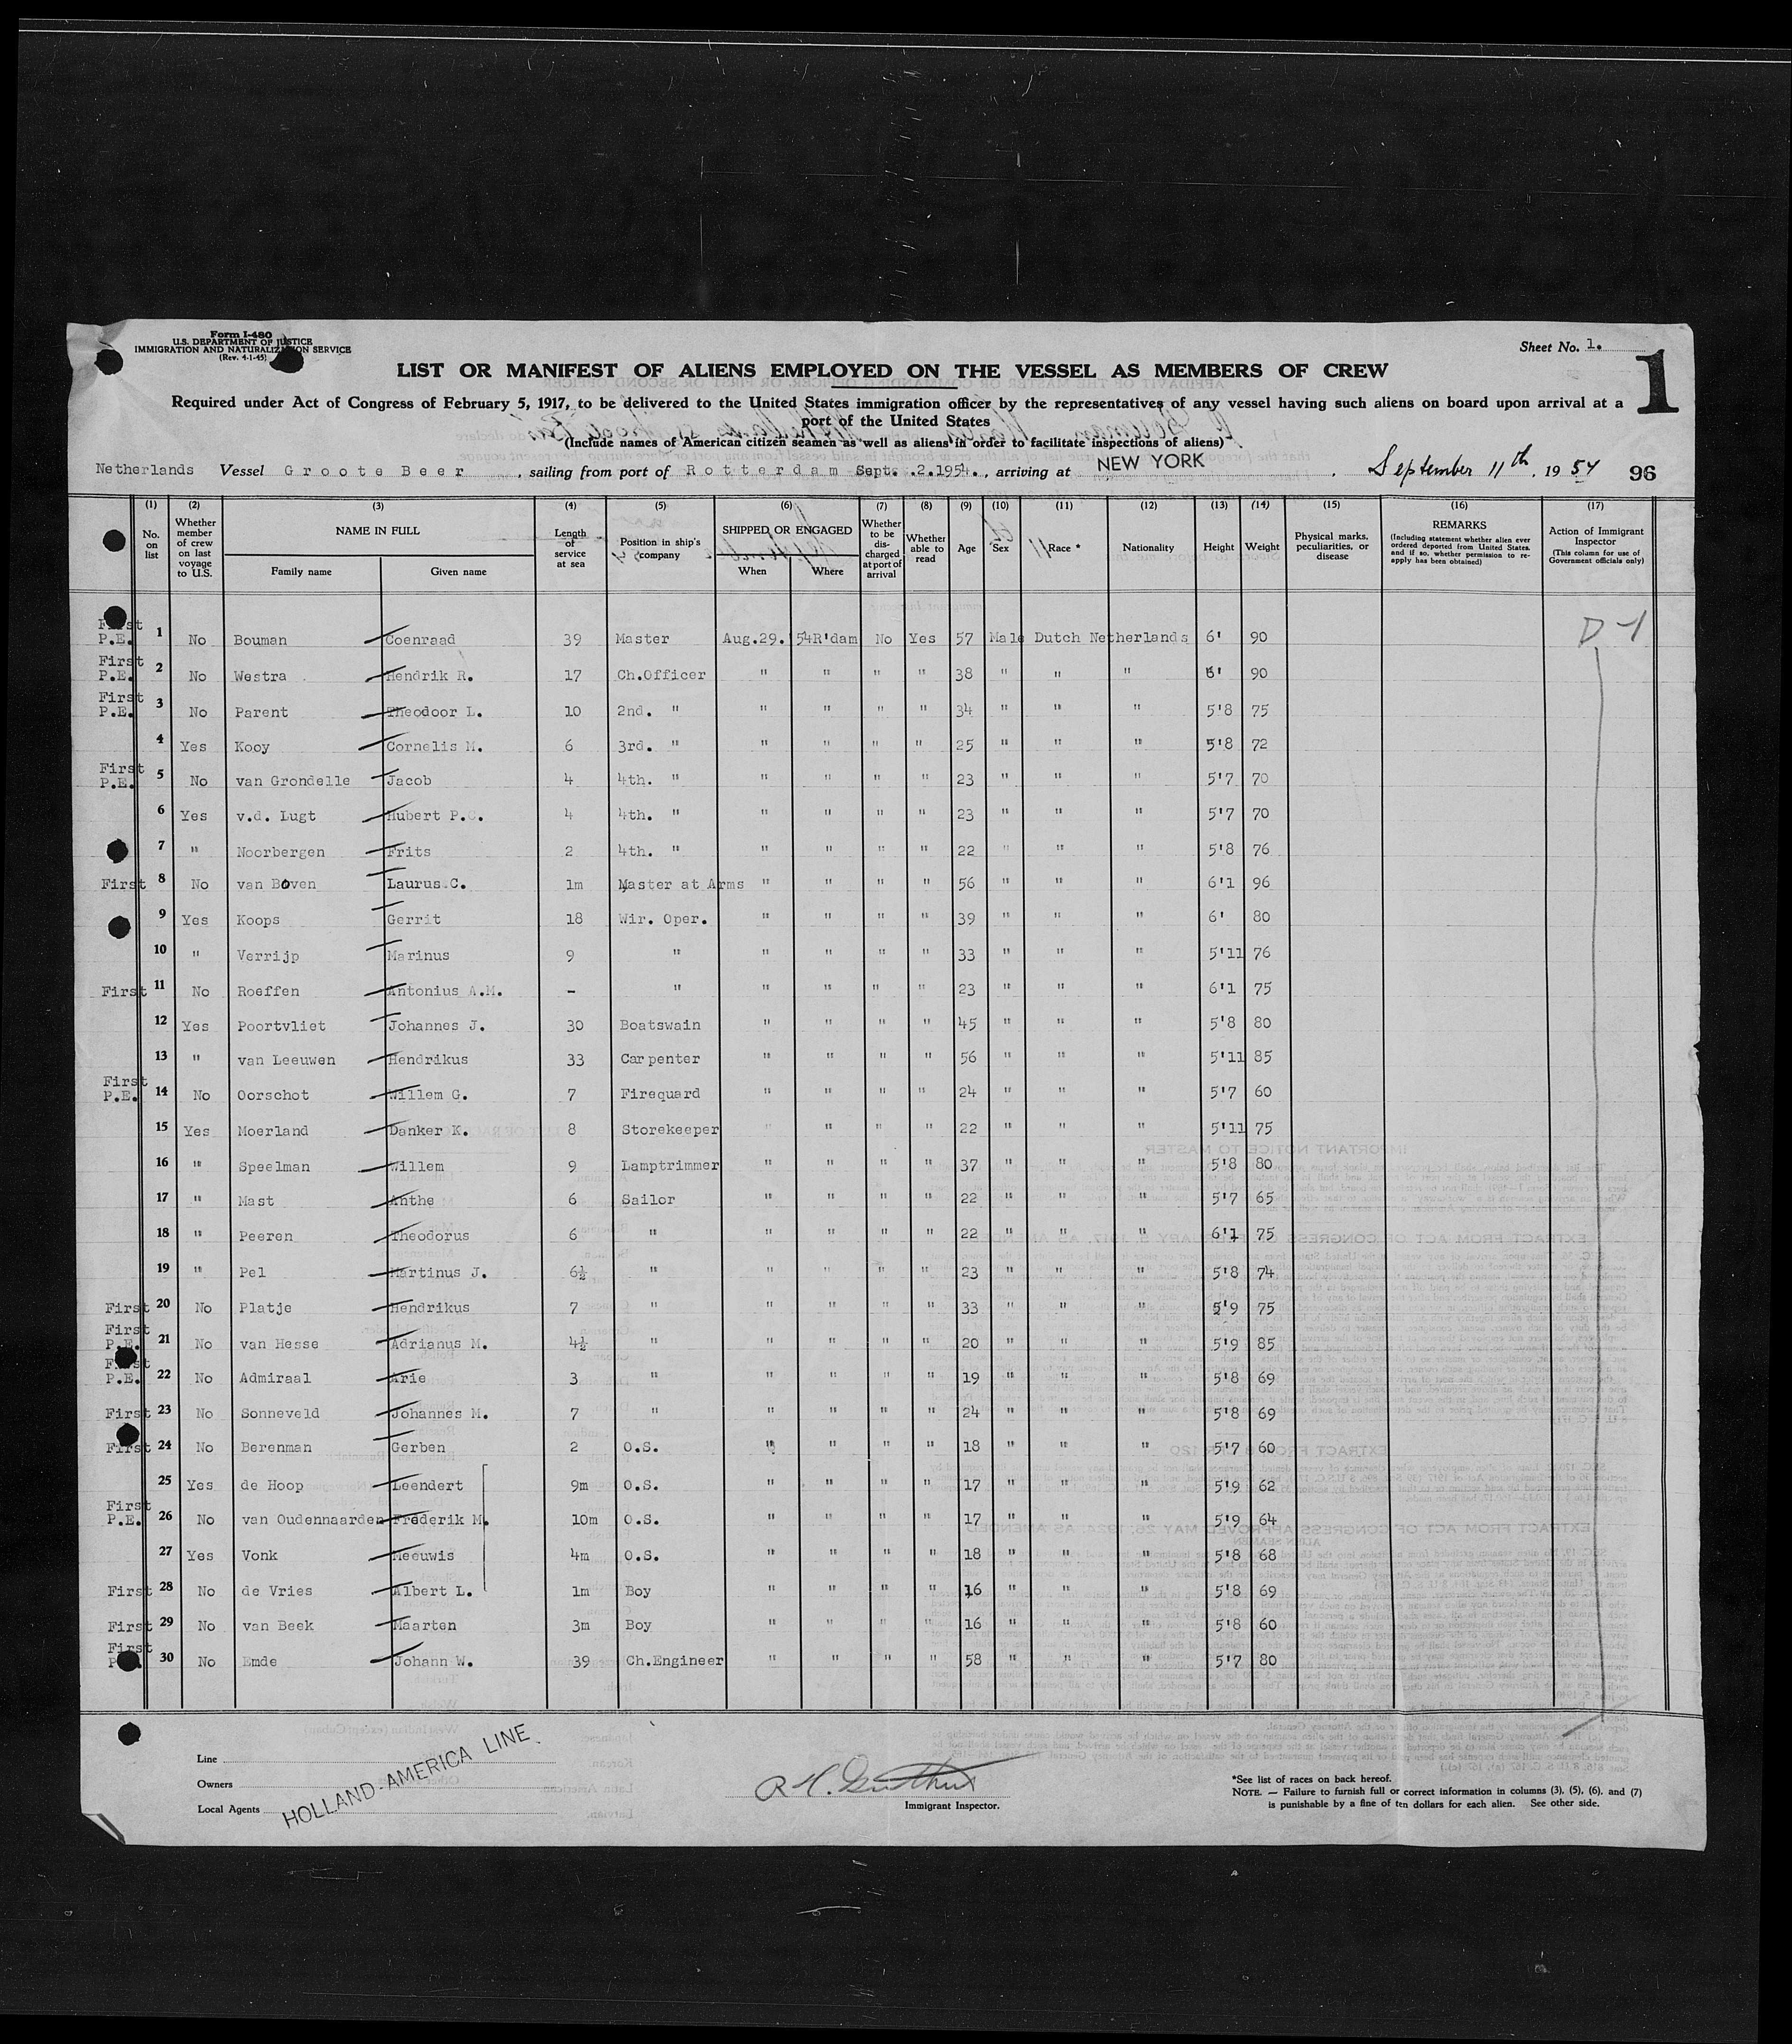 Form I-480
U.S. DEPARTMENT OF JUSTICE
IMMIGRATION AND NATURALIZATION SERVICE
(Rev. 4-1-45)
Sheet No. 1.
1
LIST OR MANIFEST OF ALIENS EMPLOYED ON THE VESSEL AS MEMBERS OF CREW
Required under Act of Congress of February 5, 1917, to be delivered to the United States immigration officer by the representatives of any vessel having such aliens on board upon arrival at a
port of the United States
(Include names of American citizen seamen as well as aliens in order to facilitate inspections of aliens)
Netherlands Vessel Groote Beer, sailing from port of Rotterdam Sept. .2.1954., arriving at NEW YORK, September 11th, 1954 96
(1) No. on list (2) Whether member of crew on last voyage to U.S. (3) NAME IN FULL Family name Given name (4) Length of service at sea (5) Position in ship's company (6) SHIPPED OR ENGAGED When Where (7) Whether to be discharged at port of arrival (8) Whether able to read (9) Age (10) Sex (11) Race * (12) Nationality (13) Height (14) Weight (15) Physical marks, peculiarities, or disease (16) REMARKS (Including statement whether alien ever ordered deported from United States, and if so, whether permission to re-apply has been obtained) (17) Action of Immigrant Inspector (This column for use of Government officials only)
First P.E. 1 No Bouman Coenraad 39 Master Aug.29.'54 R'dam No Yes 57 Male Dutch Netherlands 6' 90 D-1
First P.E. 2 No Westra Hendrik R. 17 Ch.Officer " " " " 38 " " " 6' 90
First P.E. 3 No Parent Theodoor L. 10 2nd. " " " " " 34 " " " 5'8 75
4 Yes Kooy Cornelis M. 6 3rd. " " " " " 25 " " " 5'8 72
First P.E. 5 No van Grondelle Jacob 4 4th. " " " " " 23 " " " 5'7 70
6 Yes v.d. Lugt Hubert P.C. 4 4th. " " " " " 23 " " " 5'7 70
7 " Noorbergen Frits 2 4th. " " " " " 22 " " " 5'8 76
First 8 No van Boven Laurus C. 1m Master at Arms " " " " 56 " " " 6'1 96
9 Yes Koops Gerrit 18 Wir. Oper. " " " " 39 " " " 6' 80
10 " Verrijp Marinus 9 " " " " " 33 " " " 5'11 76
First 11 No Roeffen Antonius A.M. - " " " " " 23 " " " 6'1 75
12 Yes Poortvliet Johannes J. 30 Boatswain " " " " 45 " " " 5'8 80
13 " van Leeuwen Hendrikus 33 Carpenter " " " " 56 " " " 5'11 85
First P.E. 14 No Oorschot Willem G. 7 Fireguard " " " " 24 " " " 5'7 60
15 Yes Moerland Danker K. 8 Storekeeper " " " " 22 " " " 5'11 75
16 " Speelman Willem 9 Lamptrimmer " " " " 37 " " " 5'8 80
17 " Mast Anthe 6 Sailor " " " " 22 " " " 5'7 65
18 " Peeren Theodorus 6 " " " " " 22 " " " 6'1 75
19 " Pel Martinus J. 6½ " " " " " 23 " " " 5'8 74
First 20 No Platje Hendrikus 7 " " " " " 33 " " " 5'9 75
First P.E. 21 No van Hesse Adrianus M. 4½ " " " " " 20 " " " 5'9 85
First P.E. 22 No Admiraal Arie 3 " " " " " 19 " " " 5'8 69
First 23 No Sonneveld Johannes M. 7 " " " " " 24 " " " 5'8 69
First 24 No Berenman Gerben 2 O.S. " " " " 18 " " " 5'7 60
25 Yes de Hoop Leendert 9m O.S. " " " " 17 " " " 5'9 62
First P.E. 26 No van Oudennaarden Frederik M. 10m O.S. " " " " 17 " " " 5'9 64
27 Yes Vonk Meeuwis 4m O.S. " " " " 18 " " " 5'8 68
First 28 No de Vries Albert L. 1m Boy " " " " 16 " " " 5'8 69
First 29 No van Beek Maarten 3m Boy " " " " 16 " " " 5'8 60
First 30 No Emde Johann W. 39 Ch.Engineer " " " " 58 " " " 5'7 80
Line
Owners
Local Agents
HOLLAND-AMERICA LINE
Immigrant Inspector.
*See list of races on back hereof.
NOTE. — Failure to furnish full or correct information in columns (3), (5), (6), and (7)
is punishable by a fine of ten dollars for each alien. See other side.